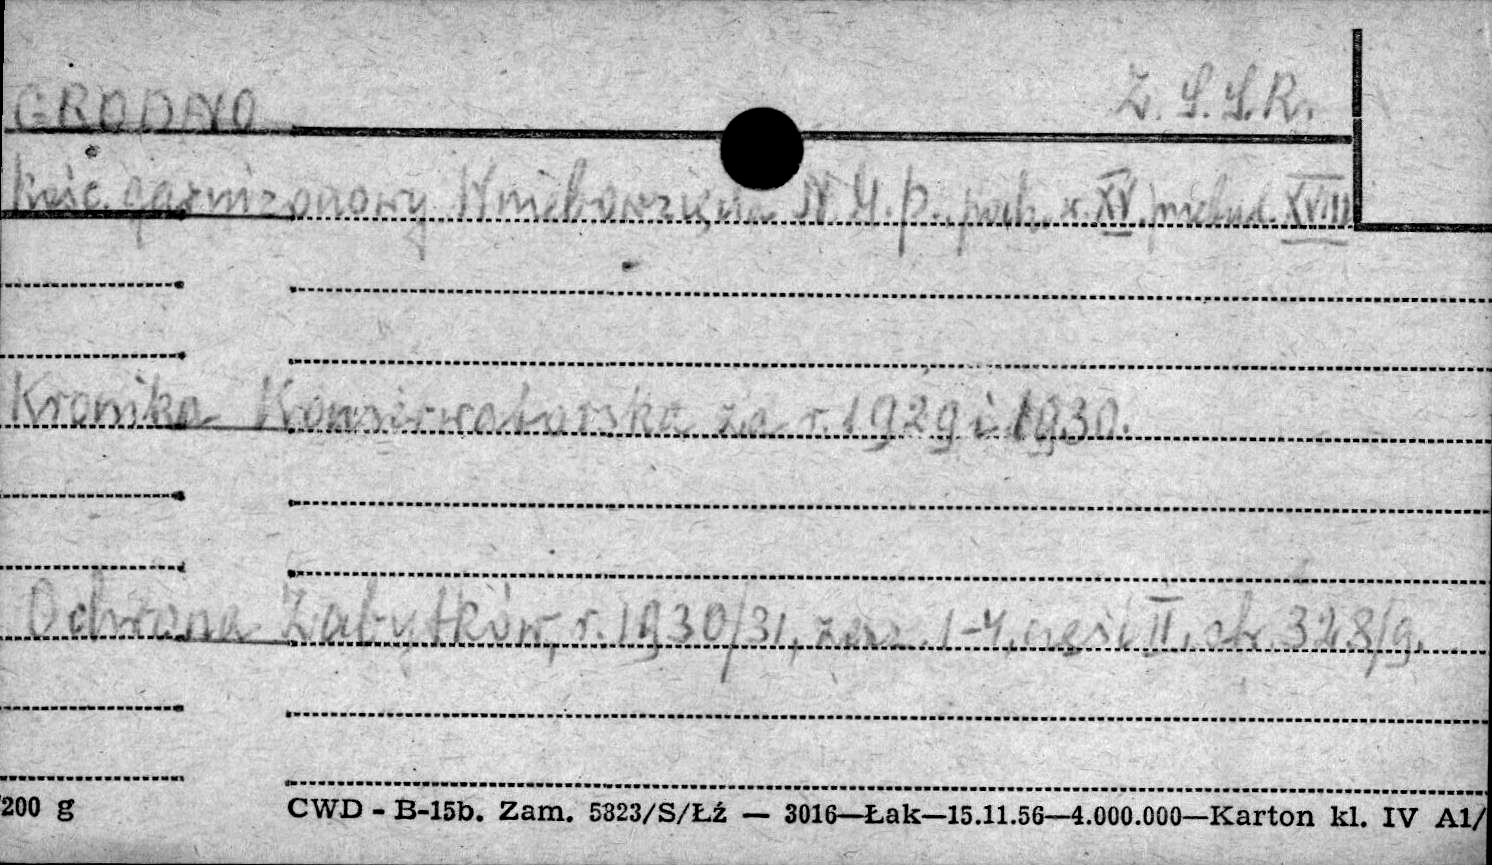 GRODNO Z.S.S.R.
Kość. garnizonowy Wniebowzięcia N.M.P. poch. z XV, przebud. XVIII
Kronika Konserwatorska za r. 1929 i 1930.
Ochrona Zabytków, r. 1930/31, zesz. 1-4, część II, str. 328/9.
200 g CWD - B-15b. Zam. 5323/S/Łź — 3016—Łak—15.11.56—4.000.000—Karton kl. IV A1/